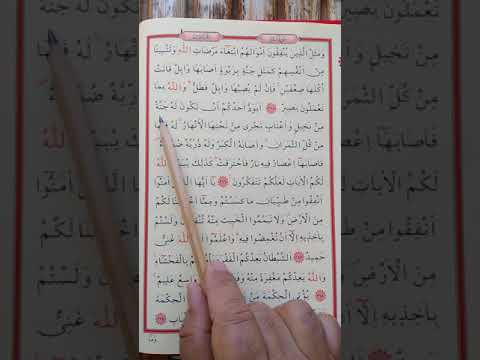 وَمَثَلُ الَّذِينَ يُنْفِقُونَ اَمْوَالَهُمُ ابْتِغَاءَ مَرْضَاتِ اللّٰهِ وَتَثْبِيتًا
مِنْ اَنْفُسِهِمْ كَمَثَلِ جَنَّةٍ بِرَبْوَةٍ اَصَابَهَا وَابِلٌ فَاٰتَتْ
اُكُلَهَا ضِعْفَيْنِ فَاِنْ لَمْ يُصِبْهَا وَابِلٌ فَطَلٌّ وَاللّٰهُ بِمَا
تَعْمَلُونَ بَصِيرٌ اَيَوَدُّ اَحَدُكُمْ اَنْ تَكُونَ لَهُ جَنَّةٌ
مِنْ نَخِيلٍ وَاَعْنَابٍ تَجْرِى مِنْ تَحْتِهَا الْاَنْهَارُ لَهُ فِيهَا
مِنْ كُلِّ الثَّمَرَاتِ وَاَصَابَهُ الْكِبَرُ وَلَهُ ذُرِّيَّةٌ ضُعَفَاءُ
فَاَصَابَهَا اِعْصَارٌ فِيهِ نَارٌ فَاحْتَرَقَتْ كَذٰلِكَ يُبَيِّنُ اللّٰهُ
لَكُمُ الْاٰيَاتِ لَعَلَّكُمْ تَتَفَكَّرُونَ يَا اَيُّهَا الَّذِينَ اٰمَنُوا
اَنْفِقُوا مِنْ طَيِّبَاتِ مَا كَسَبْتُمْ وَمِمَّا اَخْرَجْنَا لَكُمْ
مِنَ الْاَرْضِ وَلَا تَيَمَّمُوا الْخَبِيثَ مِنْهُ تُنْفِقُونَ وَلَسْتُمْ
بِاٰخِذِيهِ اِلَّا اَنْ تُغْمِضُوا فِيهِ وَاعْلَمُوا اَنَّ اللّٰهَ غَنِىٌّ
حَمِيدٌ اَلشَّيْطَانُ يَعِدُكُمُ الْفَقْرَ وَيَأْمُرُكُمْ بِالْفَحْشَاءِ
وَاللّٰهُ يَعِدُكُمْ مَغْفِرَةً مِنْهُ وَاسِعٌ عَلِيمٌ
يُؤْتِى الْحِكْمَةَ مَنْ الْحِكْمَةَ